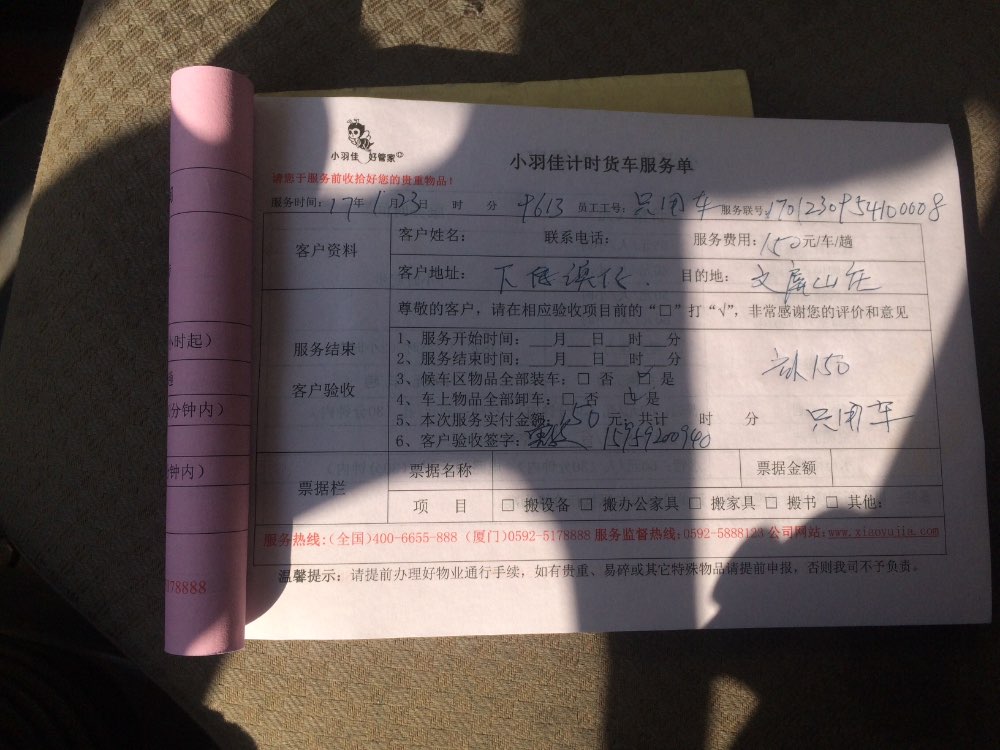 小羽佳 好管家
小羽佳计时货车服务单
请您于服务前收拾好您的贵重物品!
服务时间: 17年 1月23日 时 分 9613 员工工号: 只用车 服务联号: 1701230954100008
客户资料
客户姓名: 联系电话: 服务费用: 150元/车/趟
客户地址: 目的地:
服务结束
客户验收
尊敬的客户，请在相应验收项目前的“□”打“√”，非常感谢您的评价和意见
1、服务开始时间: __月__日__时__分
2、服务结束时间: __月__日__时__分
3、候车区物品全部装车: □ 否 ☑ 是
150
4、车上物品全部卸车: □ 否 ☑ 是
5、本次服务实付金额: 150 元，共计 时 分
只用车
6、客户验收签字: 15959200940
票据栏
票据名称 票据金额
项 目 □ 搬设备 □ 搬办公家具 □ 搬家具 □ 搬书 □ 其他:
服务热线:(全国)400-6655-888 (厦门)0592-5178888 服务监督热线:0592-5888123 公司网站:www.xiaoyujia.com
温馨提示: 请提前办理好物业通行手续，如有贵重、易碎或其它特殊物品请提前申报，否则我司不予负责。
小时起)
分钟内)
钟内)
178888